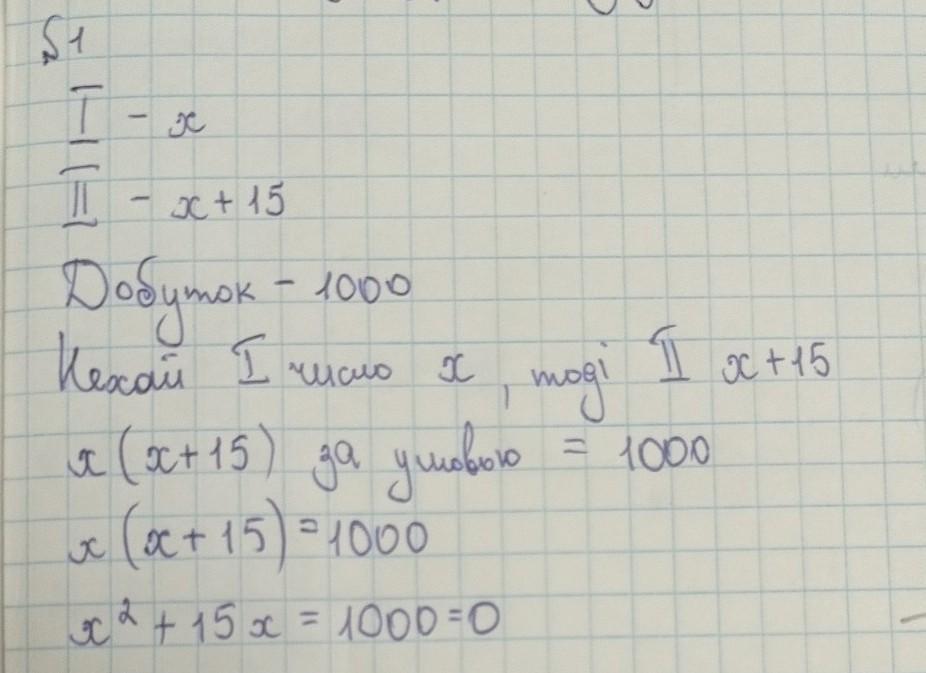 №1
I - x
II - x + 15
Добуток - 1000
Нехай I число x, тоді II x + 15
x (x + 15) за умовою = 1000
x (x + 15) = 1000
x² + 15x = 1000 = 0